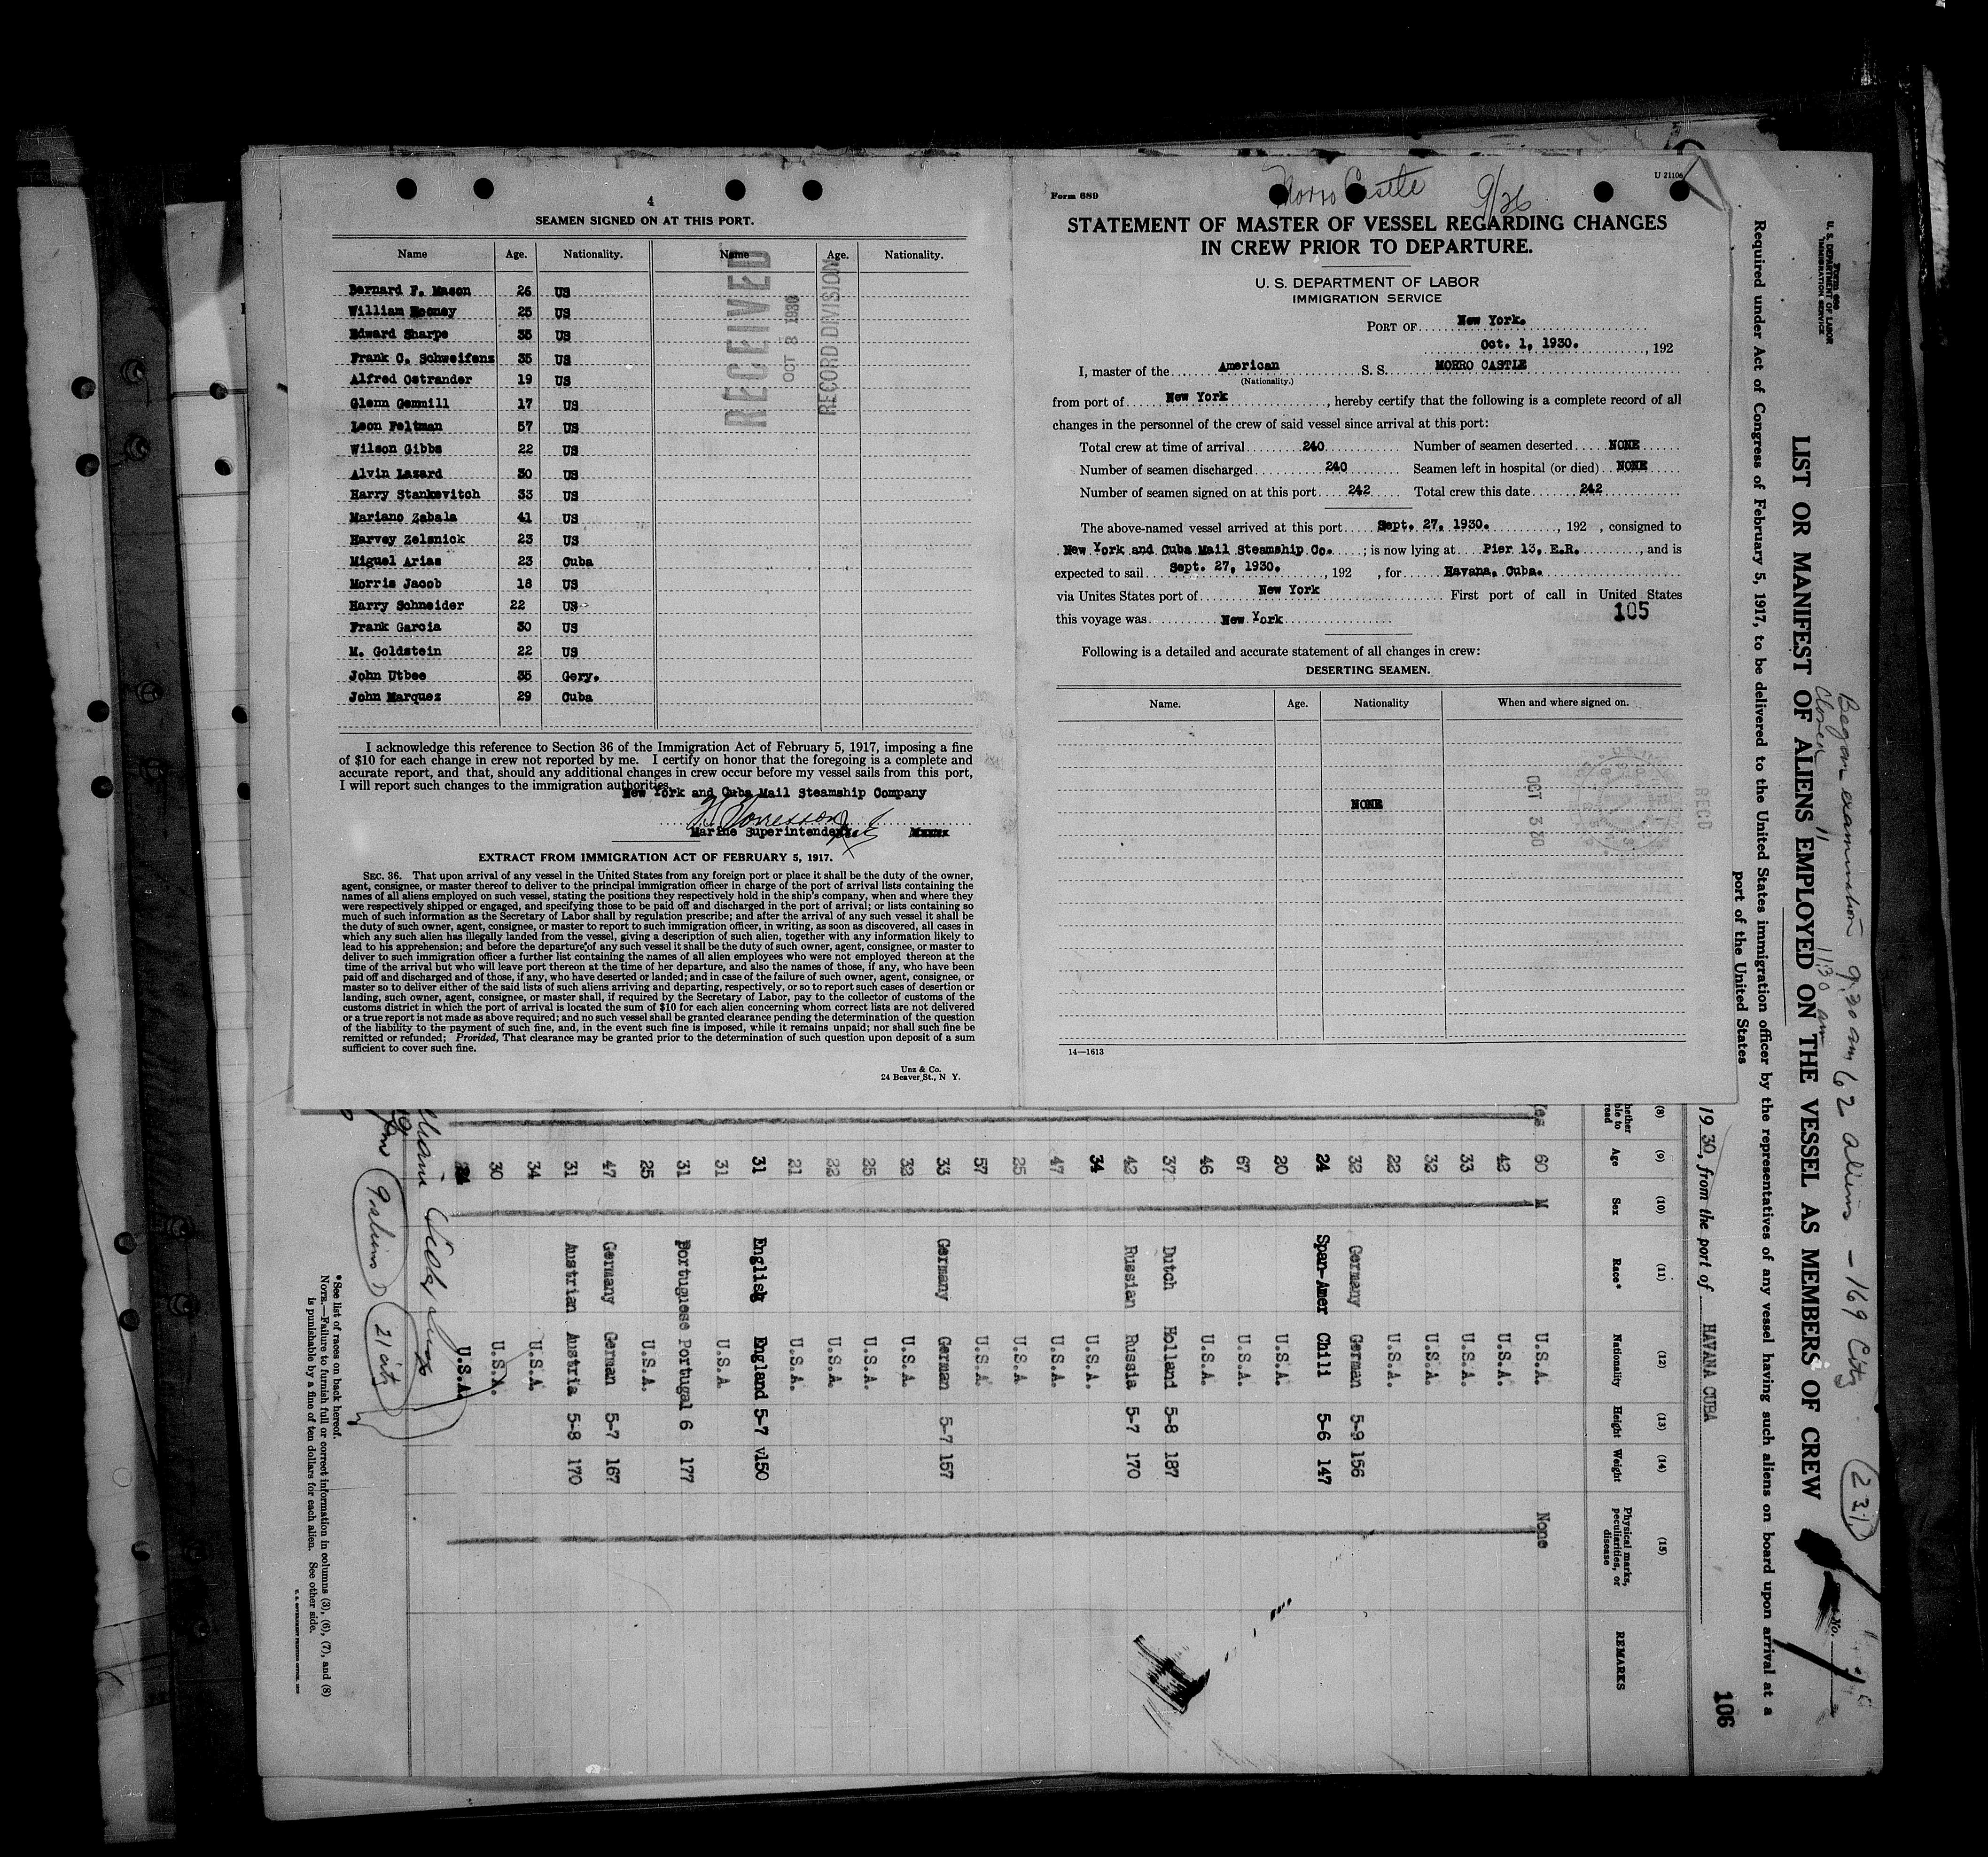 4
SEAMEN SIGNED ON AT THIS PORT.
Name Age. Nationality. Name Age. Nationality.
Bernard F. Mason 26 US
William Mooney 25 US
Edward Sharpe 35 US
Frank C. Schweifens 35 US
Alfred Ostrander 19 US
Glenn Gemmill 17 US
Leon Feltman 57 US
Wilson Gibbs 22 US
Alvin Lazard 30 US
Harry Stankevitch 33 US
Mariano Zabala 41 US
Harvey Zelsnick 23 US
Miguel Arias 23 Cuba
Morris Jacob 18 US
Harry Schneider 22 US
Frank Garcia 30 US
M. Goldstein 22 US
John Utbee 35 Gery.
John Marquez 29 Cuba
RECEIVED
OCT 3 1930
RECORD DIVISION
I acknowledge this reference to Section 36 of the Immigration Act of February 5, 1917, imposing a fine
of $10 for each change in crew not reported by me. I certify on honor that the foregoing is a complete and
accurate report, and that, should any additional changes in crew occur before my vessel sails from this port,
I will report such changes to the immigration authorities.
New York and Cuba Mail Steamship Company
Marine Superintendent
EXTRACT FROM IMMIGRATION ACT OF FEBRUARY 5, 1917.
SEC. 36. That upon arrival of any vessel in the United States from any foreign port or place it shall be the duty of the owner,
agent, consignee, or master thereof to deliver to the principal immigration officer in charge of the port of arrival lists containing the
names of all aliens employed on such vessel, stating the positions they respectively hold in the ship's company, when and where they
were respectively shipped or engaged, and specifying those to be paid off and discharged in the port of arrival; or lists containing so
much of such information as the Secretary of Labor shall by regulation prescribe; and after the arrival of any such vessel it shall be
the duty of such owner, agent, consignee, or master to report to such immigration officer, in writing, as soon as discovered, all cases in
which any such alien has illegally landed from the vessel, giving a description of such alien, together with any information likely to
lead to his apprehension; and before the departure of any such vessel it shall be the duty of such owner, agent, consignee, or master to
deliver to such immigration officer a further list containing the names of all alien employees who were not employed thereon at the
time of the arrival but who will leave port thereon at the time of her departure, and also the names of those, if any, who have been
paid off and discharged and of those, if any, who have deserted or landed; and in case of the failure of such owner, agent, consignee, or
master so to deliver either of the said lists of such aliens arriving and departing, respectively, or so to report such cases of desertion or
landing, such owner, agent, consignee, or master shall, if required by the Secretary of Labor, pay to the collector of customs of the
customs district in which the port of arrival is located the sum of $10 for each alien concerning whom correct lists are not delivered
or a true report is not made as above required; and no such vessel shall be granted clearance pending the determination of the question
of the liability to the payment of such fine, and, in the event such fine is imposed, while it remains unpaid; nor shall such fine be
remitted or refunded; Provided, That clearance may be granted prior to the determination of such question upon deposit of a sum
sufficient to cover such fine.
Unz & Co.
24 Beaver St., N Y.
Form 689
Morro Castle 9/26
U 21106
STATEMENT OF MASTER OF VESSEL REGARDING CHANGES
IN CREW PRIOR TO DEPARTURE.
U. S. DEPARTMENT OF LABOR
IMMIGRATION SERVICE
PORT OF New York.
Oct. 1, 1930. , 192
I, master of the American S. S. MORRO CASTLE
(Nationality.)
from port of New York , hereby certify that the following is a complete record of all
changes in the personnel of the crew of said vessel since arrival at this port:
Total crew at time of arrival 240 Number of seamen deserted NONE
Number of seamen discharged 240 Seamen left in hospital (or died) NONE
Number of seamen signed on at this port 242 Total crew this date 242
The above-named vessel arrived at this port Sept. 27, 1930. , 192 , consigned to
New York and Cuba Mail Steamship Co. ; is now lying at Pier 13, E.R. , and is
expected to sail Sept. 27, 1930. , 192 , for Havana, Cuba.
via Unites States port of New York First port of call in United States
this voyage was New York
105
Following is a detailed and accurate statement of all changes in crew:
DESERTING SEAMEN.
Name. Age. Nationality When and where signed on.
NONE
OCT 3 30
REC'D
14—1613
Form 680
U. S. DEPARTMENT OF LABOR
IMMIGRATION SERVICE
Began examination 9.30 am 62 aliens - 169 Citz 231
Closed " 1130 am
LIST OR MANIFEST OF ALIENS EMPLOYED ON THE VESSEL AS MEMBERS OF CREW
No.
Required under Act of Congress of February 5, 1917, to be delivered to the United States immigration officer by the representatives of any vessel having such aliens on board upon arrival at a
port of the United States
1930, from the port of HAVANA CUBA
106
(8) (9) (10) (11) (12) (13) (14) (15)
Whether able to read Age Sex Race* Nationality Height Weight Physical marks, peculiarities, or disease REMARKS
Yes 60 M U.S.A. None
42 U.S.A.
33 U.S.A.
32 U.S.A.
22 U.S.A.
32 Germany German 5-9 156
24 Span-Amer Chili 5-6 147
20 U.S.A.
67 U.S.A.
46 U.S.A.
37 Dutch Holland 5-8 187
42 Russian Russia 5-7 170
34 U.S.A.
47 U.S.A.
25 U.S.A.
57 U.S.A.
33 Germany German 5-7 157
32 U.S.A.
25 U.S.A.
22 U.S.A.
21 U.S.A.
31 English England 5-7 150
31 U.S.A.
31 Portuguese Portugal 6 177
25 U.S.A.
47 Germany German 5-7 167
31 Austrian Austria 5-8 170
34 U.S.A.
30 U.S.A.
U.S.A.
9 aliens 21 citz
*See list of races on back hereof.
NOTE.—Failure to furnish full or correct information in columns (3), (6), (7), and (8)
is punishable by a fine of ten dollars for each alien. See other side.
U. S. GOVERNMENT PRINTING OFFICE